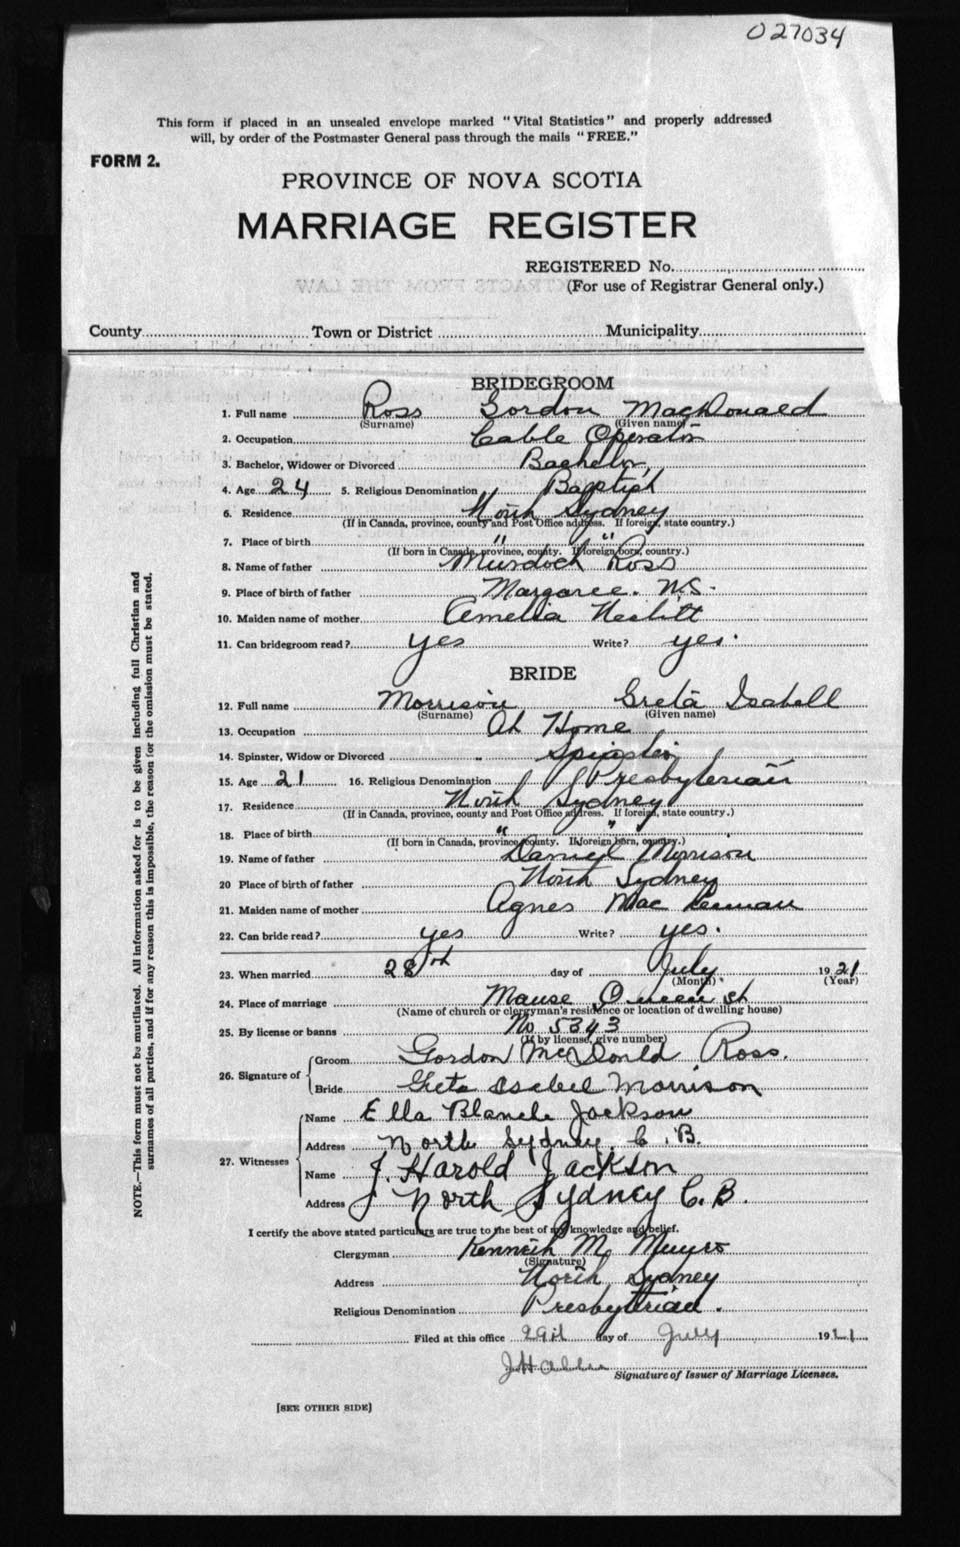 027034
This form if placed in an unsealed envelope marked "Vital Statistics" and properly addressed
will, by order of the Postmaster General pass through the mails "FREE."
FORM 2.
PROVINCE OF NOVA SCOTIA
MARRIAGE REGISTER
REGISTERED No.
(For use of Registrar General only.)
County Town or District Municipality
BRIDEGROOM
1. Full name Ross Gordon MacDonald
(Surname) (Given name)
2. Occupation Cable Operator
3. Bachelor, Widower or Divorced Bachelor
4. Age 24 5. Religious Denomination Baptist
6. Residence North Sydney
(If in Canada, province, county and Post Office address. If foreign, state country.)
7. Place of birth " "
(If born in Canada, province, county. If foreign born, country.)
8. Name of father Murdoch Ross
9. Place of birth of father Margaree. N.S.
10. Maiden name of mother Amelia Nesbitt
11. Can bridegroom read? yes Write? yes.
BRIDE
12. Full name Morrison Greta Isabell
(Surname) (Given name)
13. Occupation At Home
14. Spinster, Widow or Divorced Spinster
15. Age 21 16. Religious Denomination Presbyterian
17. Residence North Sydney
(If in Canada, province, county and Post Office address. If foreign, state country.)
18. Place of birth " "
(If born in Canada, province, county. If foreign born, country.)
19. Name of father Daniel Morrison
20 Place of birth of father North Sydney
21. Maiden name of mother Agnes Mac
22. Can bride read? yes Write? yes.
23. When married 28th day of July 1921
(Month) (Year)
24. Place of marriage Manse Queen St
(Name of church or clergyman's residence or location of dwelling house)
25. By license or banns No 5343
(If by license, give number)
26. Signature of Groom Gordon McDonald Ross.
Bride Greta Isabel Morrison
27. Witnesses
Name Ella Blanche Jackson
Address North Sydney, C.B.
Name J. Harold Jackson
Address North Sydney C.B.
I certify the above stated particulars are true to the best of my knowledge and belief.
Clergyman Kenneth M. Munro
(Signature)
Address North Sydney
Religious Denomination Presbyterian.
Filed at this office 29th day of July 1921
Signature of Issuer of Marriage Licenses.
[SEE OTHER SIDE]
NOTE.—This form must not be mutilated. All information asked for is to be given including full Christian and
surnames of all parties, and if for any reason this is impossible, the reason for the omission must be stated.